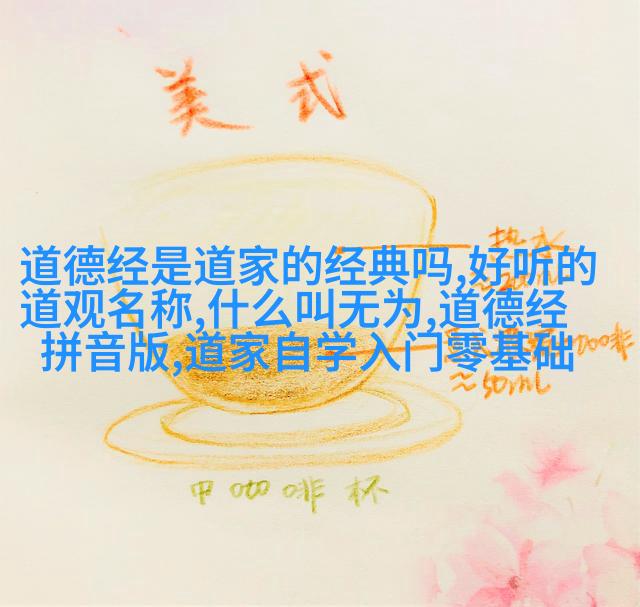 美式
热水
道德经是道家的经典吗,好听的
道观名称,什么叫无为,道德经
拼音版,道家自学入门零基础
≈50mL
中咖啡杯